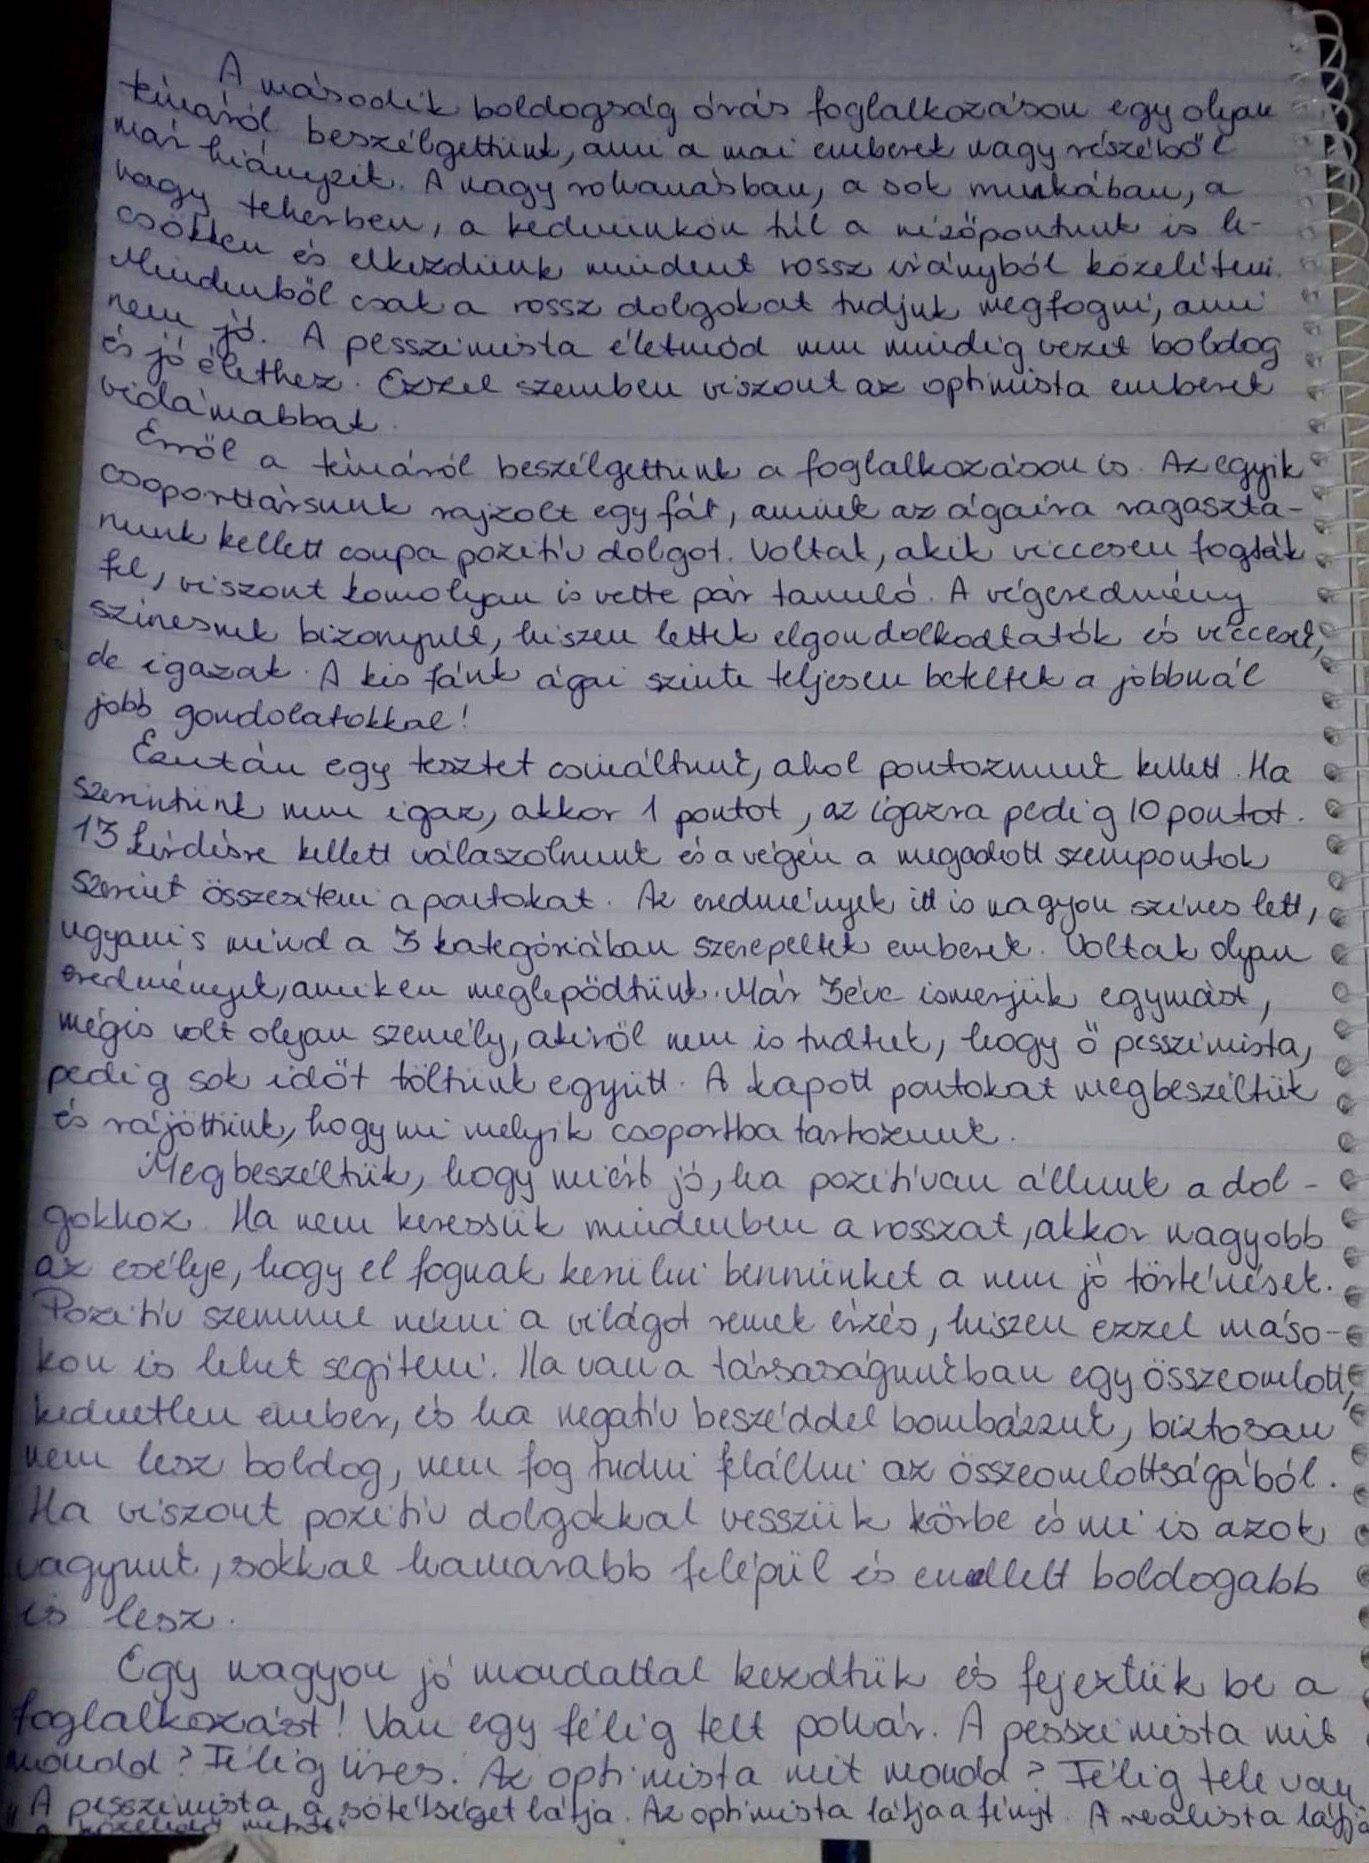 A második boldogság órás foglalkozáson egy olyan
témáról beszélgettünk, ami a mai emberek nagy részéből
már hiányzik. A nagy rohanásban, a sok munkában, a
nagy teherben, a kedvünkön túl a nézőpontunk is le-
csökken és elkezdünk mindent rossz irányból közelíteni.
Mindenből csak a rossz dolgokat tudjuk megfogni, ami
nem jó. A pesszimista életmód nem mindig vezet boldog
és jó élethez. Ezzel szemben viszont az optimista emberek
vidámabbak.
Erről a témáról beszélgettünk a foglalkozáson is. Az egyik
csoporttársunk rajzolt egy fát, aminek az ágaira ragaszta-
nunk kellett csupa pozitív dolgot. Voltak, akik viccesen fogták
fel, viszont komolyan is vette pár tanuló. A végeredmény
színesnek bizonyult, hiszen lettek elgondolkodtatók és viccesek,
de igazak. A kis fánk ágai szinte teljesen beteltek a jobbnál
jobb gondolatokkal!
Ezután egy tesztet csináltunk, ahol pontoznunk kellett. Ha
szerintünk nem igaz, akkor 1 pontot, az igazra pedig 10 pontot.
13 kérdésre kellett válaszolnunk és a végén a megadott szempontok
szerint összesíteni a pontokat. Az eredmények itt is nagyon színes lett,
ugyanis mind a 3 kategóriában szerepeltek emberek. Voltak olyan
eredmények, amiken meglepődtünk. Már 3 éve ismerjük egymást,
mégis volt olyan személy, akiről nem is tudtuk, hogy ő pesszimista,
pedig sok időt töltünk együtt. A kapott pontokat megbeszéltük
és rájöttünk, hogy mi melyik csoportba tartozunk.
Megbeszéltük, hogy miért jó, ha pozitívan állunk a dol-
gokhoz. Ha nem keressük mindenben a rosszat, akkor nagyobb
az esélye, hogy el fognak kerülni bennünket a nem jó történések.
Pozitív szemmel nézni a világot remek érzés, hiszen ezzel máso-
kon is lehet segíteni. Ha van a társaságunkban egy összeomlott,
kedvetlen ember, és ha negatív beszéddel bombázzuk, biztosan
nem lesz boldog, nem fog tudni felállni az összeomlottságából.
Ha viszont pozitív dolgokkal vesszük körbe és mi is azok
vagyunk, sokkal hamarabb felépül és emellett boldogabb
is lesz.
Egy nagyon jó mondattal kezdtük és fejeztük be a
foglalkozást! Van egy félig telt pohár. A pesszimista mit
mondd? Félig üres. Az optimista mit mondd? Félig tele van
"A pesszimista a sötétséget látja. Az optimista látja a fényt. A realista látja
a közeledő metrót"